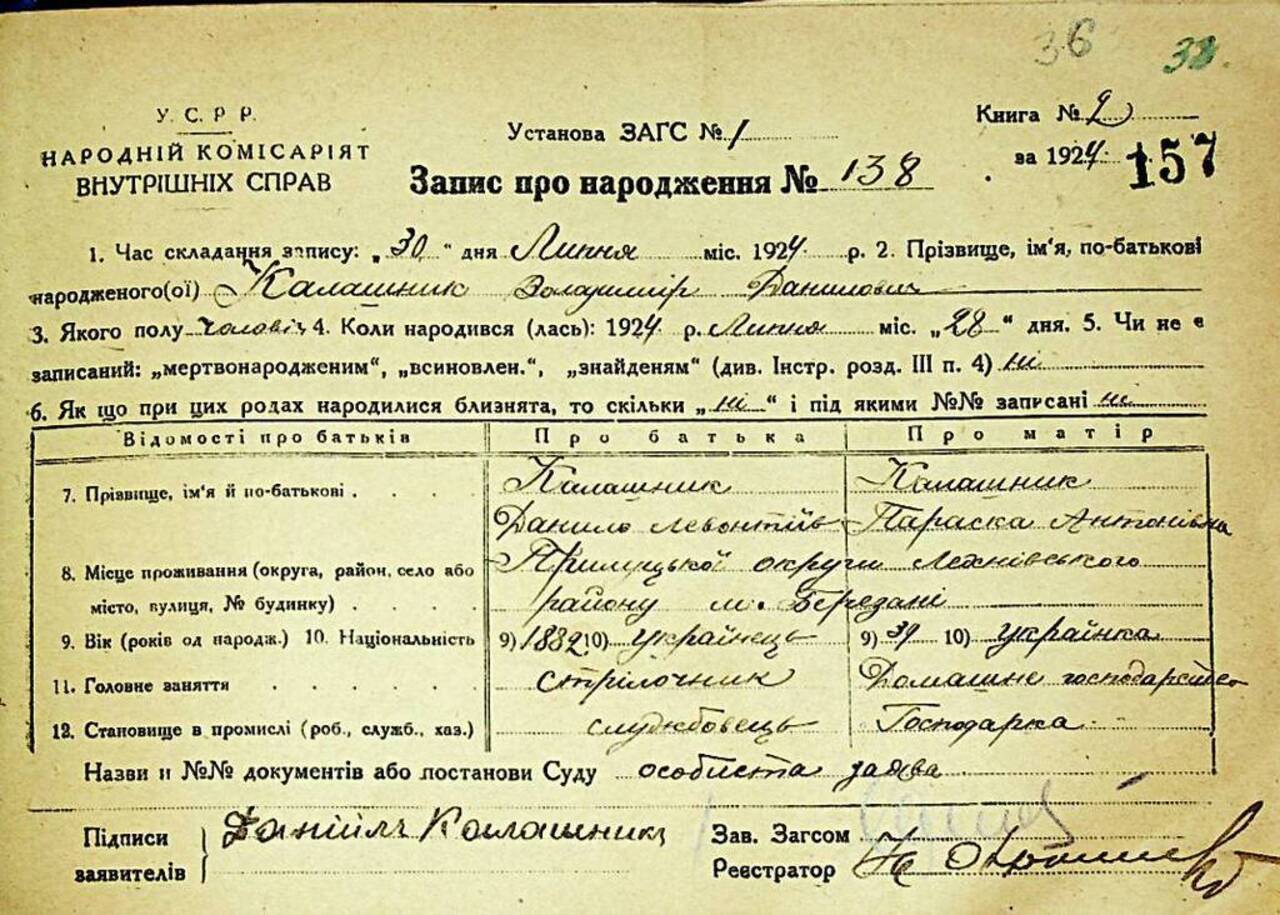 36 38.
У. С. Р. Р.
НАРОДНІЙ КОМІСАРІЯТ
ВНУТРІШНІХ СПРАВ
Установа ЗАГС № 1
Запис про народження № 138
Книга № 2
за 1924 157
1. Час складання запису: „30“ дня Липня міс. 1924 р. 2. Прізвище, ім'я, по-батькові
народженого(ої) Калашник Володимір Данилович
3. Якого полу чоловіч 4. Коли народився (лась): 1924 р. Липня міс. „28“ дня. 5. Чи не є
записаний: „мертвонародженим“, „всиновлен.“, „знайденям“ (див. Інстр. розд. III п. 4) ні
6. Як що при цих родах народилися близнята, то скільки „ні“ і під якими №№ записані ні
Відомості про батьків Про батька Про матір
7. Прізвище, ім'я й по-батькові . . . . Калашник Калашник
Данило Левонтіїв Параска Антонівна
8. Місце проживання (округа, район, село або Прилуцької округи
місто, вулиця, № будинку) . . . . району м. Березані
9. Вік (років од народж.) 10. Національність 9) 1882 10) українець 9) 39 10) українка
11. Головне заняття . . . . . . стрілочник Домашне господарство
12. Становище в промислі (роб., служб., хаз.) службовець Господарка
Назви и №№ документів або постанови Суду особиста заява
Підписи Даніилъ Калашникъ
заявителів
Зав. Загсом
Реєстратор